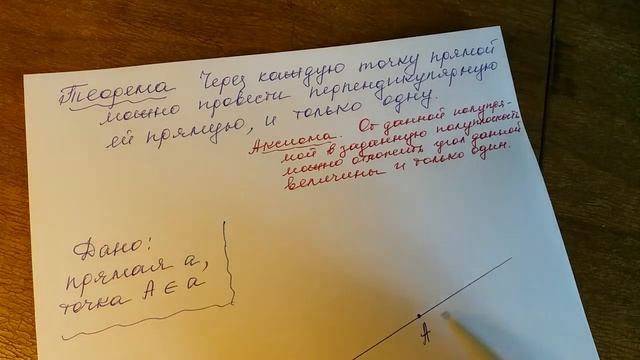 Теорема Через каждую точку прямой
можно провести перпендикулярную
ей прямую, и только одну.
Аксиома. От данной полупря-
мой в заданную полуплоскость
можно отложить угол данной
величины и только один.
Дано:
прямая a,
точка A ∈ a
A